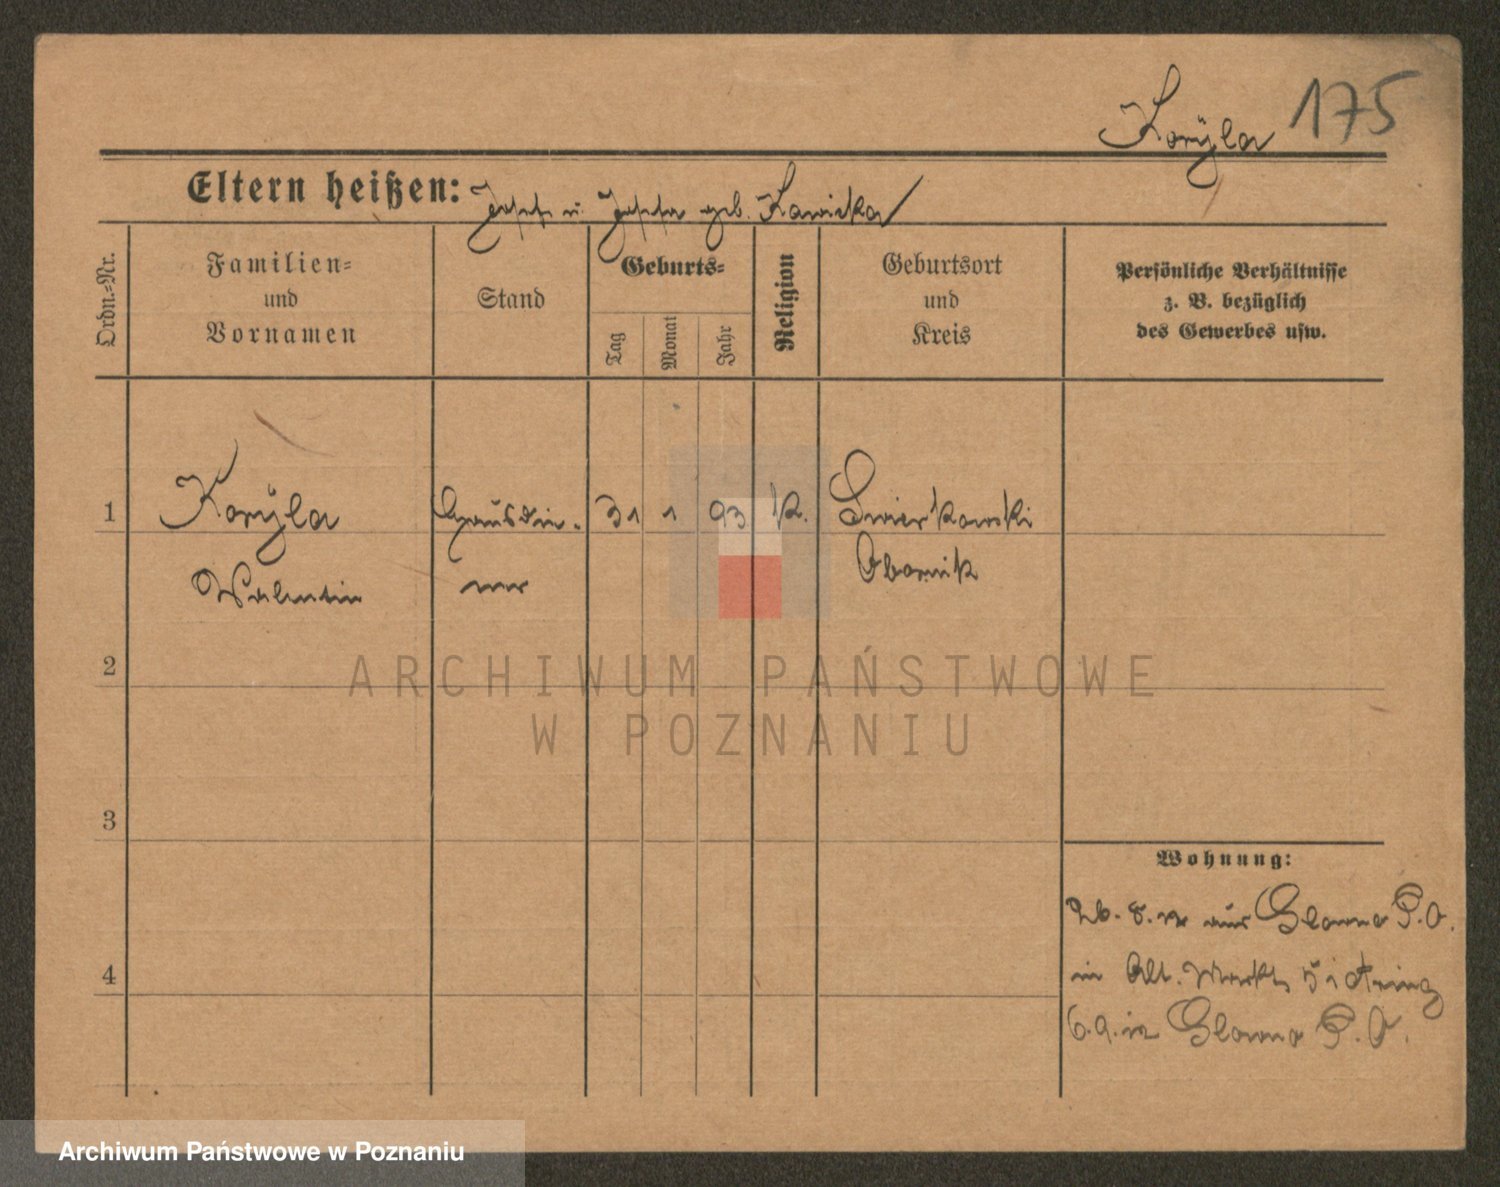 Koryla 175
Eltern heißen: Josef u. Josefa geb. Kawicka
Ordn.=Nr.
Familien=
und
Vornamen
Stand
Geburts=
Tag
Monat
Jahr
Religion
Geburtsort
und
Kreis
Persönliche Verhältnisse
z. B. bezüglich
des Gewerbes usw.
1 Koryla Hausdie- 31 1 93 K. Swierkowski
Valentin ner Obornik
2
ARCHIWUM PAŃSTWOWE
W POZNANIU
3
Wohnung:
8. 12 aus Glowno P.O.
4
in Alt. Markt 51
6.9.12 Glowno P.O.
Archiwum Państwowe w Poznaniu